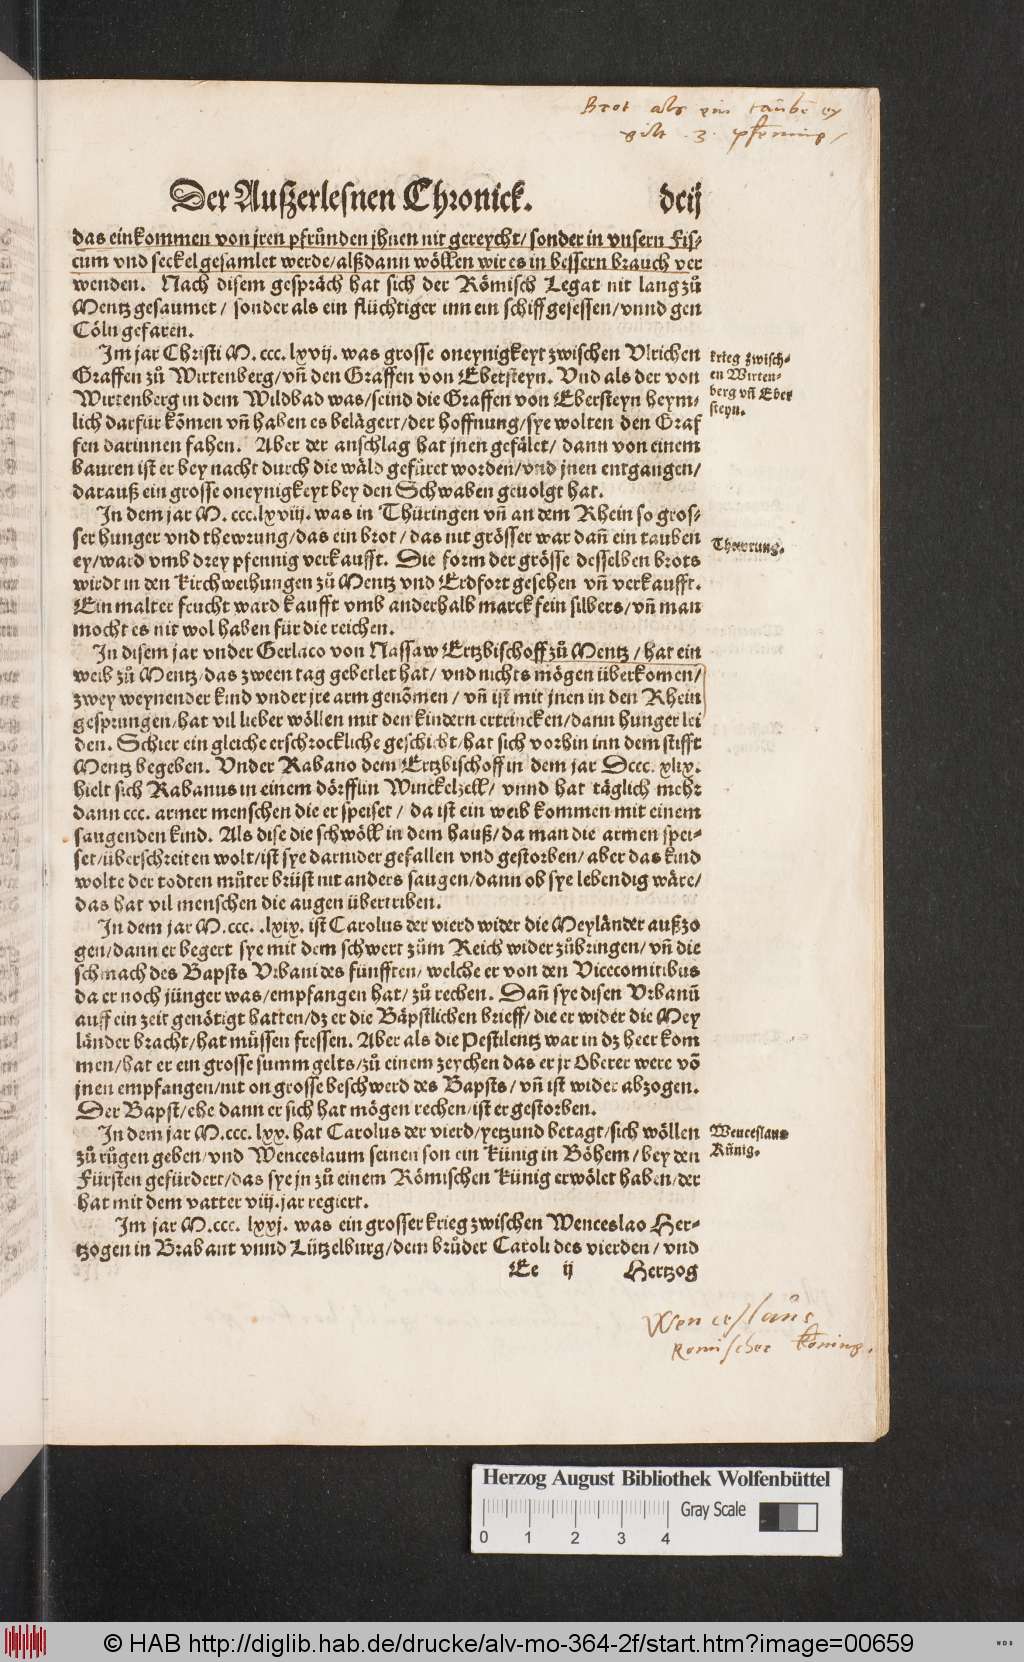 Brot als ein tauben ey
gilt .3. pfenning /
Der Außerlesnen Chronick. dcij
das einkommen von jren pfrůnden jhnen nit gereycht/ sonder in vnsern Fis-
cum vnd seckel gesamlet werde/ alßdann wöllen wir es in bessern brauch ver
wenden. Nach disem gespräch hat sich der Römisch Legat nit lang zů
Mentz gesaumet / sonder als ein flüchtiger inn ein schiff gesessen/ vnnd gen
Cöln gefaren.
Im jar Christi M. ccc. lxvij. was grosse oneynigkeyt zwischen Vlrichen
Graffen zů Wirtenberg/ vñ den Graffen von Ebersteyn. Vnd als der von
Wirtenberg in dem Wildbad was/ seind die Graffen von Ebersteyn heym-
lich darfür kõmen vñ haben es belägert/ der hoffnung/ sye wolten den Graf
fen darinnen fahen. Aber der anschlag hat jnen gefälet/ dann von einem
bauren ist er bey nacht durch die wäld gefüret worden/ vnd jnen entgangen/
darauß ein grosse oneynigkeyt bey den Schwaben geuolgt hat.
krieg zwisch-
en Wirten-
berg vñ Eber
steyn.
In dem jar M. ccc.lxviij. was in Thüringen vñ an dem Rhein so gros-
ser hunger vnd thewrung/ das ein brot / das nit grösser war dañ ein tauben
ey/ ward vmb drey pfennig verkaufft. Die form der grösse desselben brots
wirdt in den Kirchweihungen zů Mentz vnd Erdfort gesehen vñ verkaufft.
Ein malter frucht ward kaufft vmb anderhalb marck fein silbers/ vñ man
mocht es nit wol haben für die reichen.
Thewrung.
In disem jar vnder Gerlaco von Nassaw Ertzbischoff zů Mentz / hat ein
weib zů Mentz/ das zween tag gebetlet hat/ vnd nichts mögen überkomen/
zwey weynender kind vnder jre arm genõmen / vñ ist mit jnen in den Rhein
gesprungen/ hat vil lieber wöllen mit den kindern ertrincken/ dann hunger lei
den. Schier ein gleiche erschrockliche geschicht/ hat sich vorhin inn dem stifft
Mentz begeben. Vnder Rabano dem Ertzbischoff in dem jar Dccc. xlix.
hielt sich Rabanus in einem dörfflin Winckelzell/ vnnd hat täglich mehr
dann ccc. armer menschen die er speiset / da ist ein weib kommen mit einem
saugenden kind. Als dise die schwöll in dem hauß/ da man die armen spei-
set/ überschreiten wolt/ ist sye darnider gefallen vnd gestorben/ aber das kind
wolte der todten můter brüst nit anders saugen/ dann ob sye lebendig wäre/
das hat vil menschen die augen übertriben.
In dem jar M. ccc. .lxix. ist Carolus der vierd wider die Meyländer außzo
gen/ dann er begert sye mit dem schwert zům Reich wider zůbringen/ vñ die
schmach des Bapsts Vrbani des fünfften/ welche er von den Vicecomitibus
da er noch jünger was/ empfangen hat/ zů rechen. Dañ sye disen Vrbanũ
auff ein zeit genötigt hatten/ dz er die Bäpstlichen brieff/ die er wider die Mey
länder bracht/ hat můssen fressen. Aber als die Pestilentz war in dz heer kom
men/ hat er ein grosse summ gelts/ zů einem zeychen das er jr Oberer were võ
jnen empfangen/ nit on grosse beschwerd des Bapsts/ vñ ist wider abzogen.
Der Bapst/ ehe dann er sich hat mögen rechen/ ist er gestorben.
In dem jar M.ccc. lxx. hat Carolus der vierd/ yetzund betagt/ sich wöllen
zů růgen geben/ vnd Wenceslaum seinen son ein Künig in Böhem/ bey den
Fürsten gefürdert/ das sye jn zů einem Römischen Künig erwölet haben/ der
hat mit dem vatter viij. jar regiert.
Wenceslaus
Künig.
Im jar M.ccc. lxxj. was ein grosser krieg zwischen Wenceslao Her-
tzogen in Brabant vnnd Lützelburg/ dem brůder Caroli des vierden / vnd
Ee ij Hertzog
Wenceslaus
Romischer köning.
Herzog August Bibliothek Wolfenbüttel
0 1 2 3 4 Gray Scale
© HAB http://diglib.hab.de/drucke/alv-mo-364-2f/start.htm?image=00659